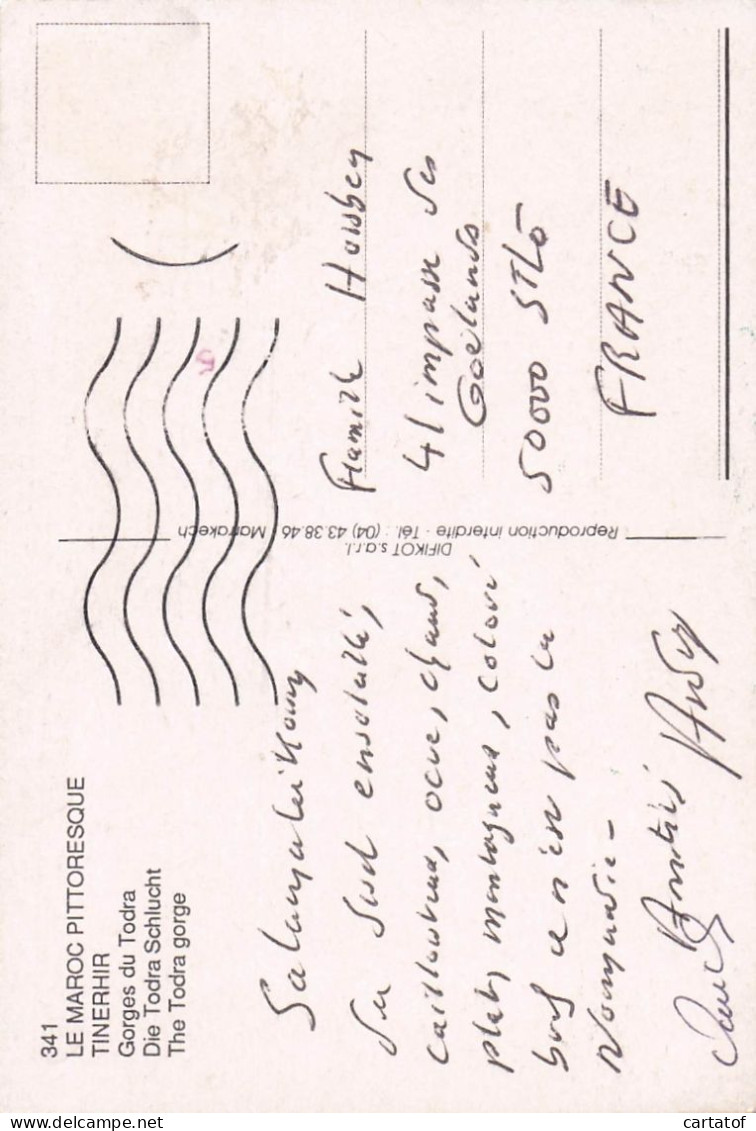 341
LE MAROC PITTORESQUE
TINERHIR
Gorges du Todra
Die Todra Schlucht
The Todra gorge
Salamaleikoum
Du Sud ensoleillé,
caillouteux, ocre, chaud,
plat, montagneux, coloré
bref ce n'est pas la
Normandie -
Amitiés
Andy
DIFIKOT s.a.r.l.
Reproduction interdite - Tél. : (04) 43.38.46 Marrakech
Famille
41 impasse des
Goélands
50000 ST LÔ
FRANCE
cartatof